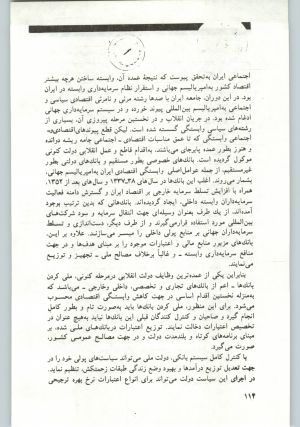 اجتماعی ایران به‌تحقق پیوست که نتیجهٔ عمده آن، وابسته ساختن هرچه بیشتر
اقتصاد کشور به‌امپریالیسم جهانی و استقرار نظام سرمایه‌داری وابسته در ایران
بود. در این دوران، جامعه ایران با صدها رشته مرئی و نامرئی اقتصادی سیاسی و
اجتماعی به‌امپریالیسم بین‌المللی پیوند خورده و در سیستم سرمایه‌داری جهانی
ادغام شده بود. در جریان انقلاب و در نخستین مرحله پیروزی آن، بسیاری از
رشته‌های سیاسی وابستگی گسسته شده است. لیکن قطع پیوندهای اقتصادی
وابستگی همچنان که تا عمق مناسبات اقتصادی ـ اجتماعی جامعه ریشه دوانده
و هنوز بطور عمده پابرجای می‌باشند، به‌اقدام قاطع و عمل انقلابی دولت کنونی
موکول گردیده است. بانک‌های خصوصی بطور مستقیم و بانک‌های دولتی بطور
غیرمستقیم، از جمله عوامل اصلی وابستگی اقتصادی ایران به‌امپریالیسم جهانی،
بشمار می‌روند. اغلب این بانک‌ها در سال‌های ۳۸ـ۱۳۳۷ و سال‌های بعد از ۱۳۵۲،
همراه با افزایش تسلط سرمایه خارجی بر اقتصاد ایران و گسترش دامنه فعالیت
سرمایه‌داران وابسته داخلی، ایجاد گردیده‌اند. بانک‌های که بدین ترتیب بوجود
آمده‌اند، از یک طرف بعنوان وسیله‌ای جهت انتقال سرمایه و سود شرکت‌های
بین‌المللی مورد استفاده قرار می‌گیرند و از طرف دیگر، دست‌اندازی و تسلط
سرمایه‌داران جهانی بر منابع پولی داخلی را میسر می‌سازند. علاوه بر این،
بانک‌های مزبور منابع مالی و اعتبارات موجود را بر مبنای هدف‌ها و در جهت
منافع سرمایه‌داری وابسته ـ و غالباً برخلاف مصالح ملی ـ تجهیز و توزیع
می‌نمایند.
بنابراین یکی از عمده‌ترین وظایف دولت انقلابی در مرحله کنونی، ملی کردن
بانک‌ها ـ اعم از بانک‌های تجاری و تخصصی، داخلی وخارجی ـ می‌باشد که
به‌منزله نخستین اقدام اساسی در جهت کاهش وابستگی اقتصادی محسوب
می‌شود. برای این منظور، ملی کردن بانک‌ها باید به‌صورت تام و بطور کامل
انجام گیرد و صاحبان و کنترل کنندگان قبلی این بانک‌ها نباید به‌هیچ عنوان در
تخصیص اعتبارات دخالت نمایند. توزیع اعتبارات دربانک‌های ملی شده، بر
مبنای برنامه‌های کوتاه و بلندمدت دولت و در جهت مصالح عمومی کشور،
صورت می‌گیرد.
با کنترل کامل سیستم بانکی، دولت ملی می‌تواند سیاست‌های پولی خود را در
جهت تعدیل توزیع درآمدها و بهبود وضع زندگی طبقات زحمتکش، تنظیم نماید.
در اجرای این سیاست دولت می‌تواند برای انواع اعتبارات نرخ بهره ترجیحی
۱۱۴